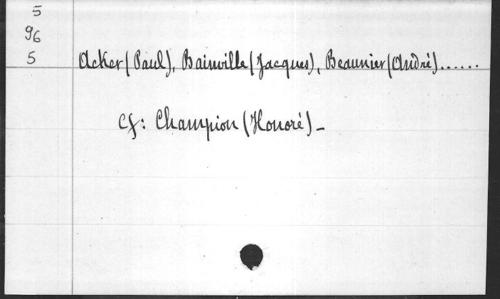 5
96
5 Acker (Paul), Bainville (Jacques), Beaunier (André)......
Cf: Champion (Honoré)_